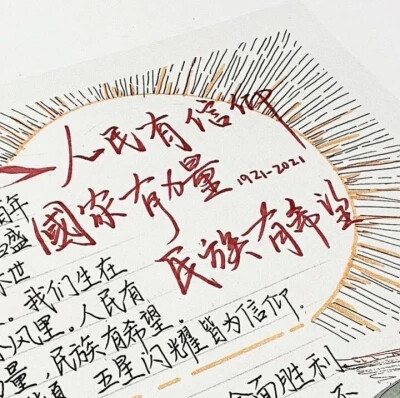 人民有信仰
國家有力量 1921-2021
民族有希望
百年
盛
世
。我们生在
风里。人民有
力量，民族有希望.
五星闪耀皆为信仰.
全面胜利